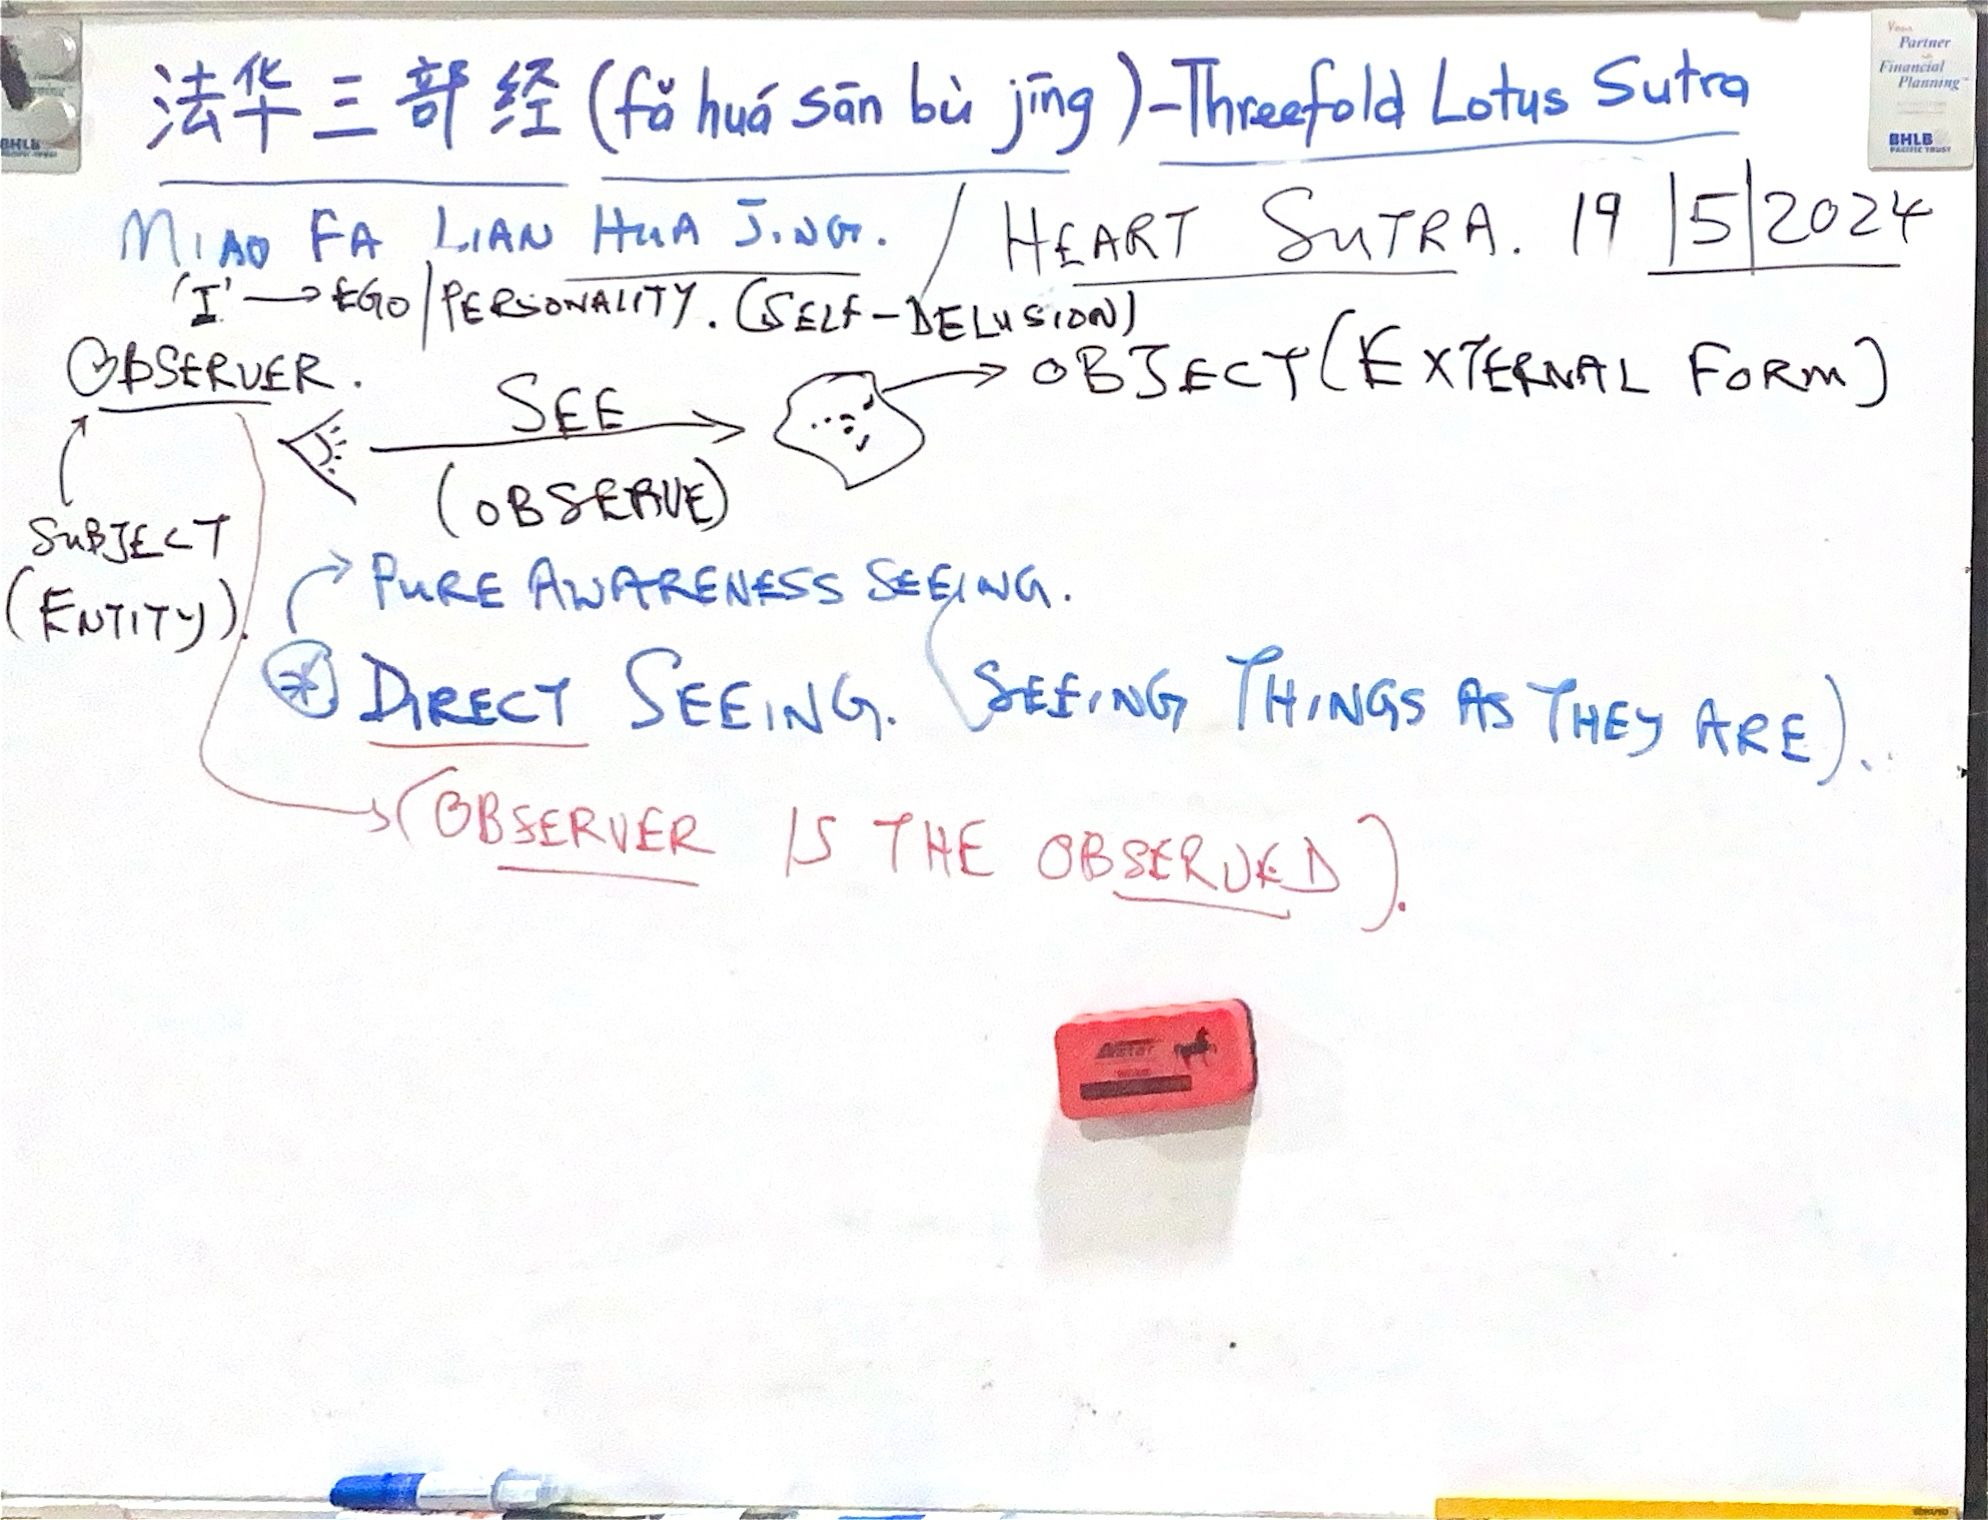 法华三部经 (fǎ huá sān bù jīng) - Threefold Lotus Sutra
MIAO FA LIAN HUA JING. / HEART SUTRA. 19/5/2024
'I' → EGO/PERSONALITY. (SELF-DELUSION)
OBSERVER.
SEE
OBJECT (EXTERNAL FORM)
(OBSERVE)
SUBJECT
(ENTITY).
PURE AWARENESS SEEING.
* DIRECT SEEING. (SEEING THINGS AS THEY ARE).
(OBSERVER IS THE OBSERVED).
Your
Partner
in
Financial
Planning
BHLB
PACIFIC TRUST
BHLB